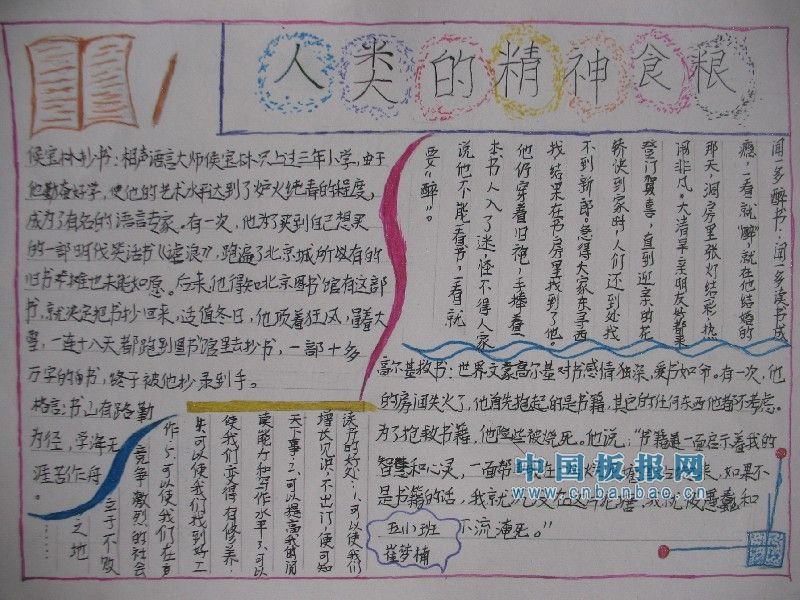 人类的精神食粮
侯宝林抄书:相声语言大师侯宝林只上过三年小学,由于
他勤奋好学,使他的艺术水平达到了炉火纯青的程度,
成为了有名的语言专家。有一次,他为了买到自己想买
的一部明代笑话书《谑浪》,跑遍了北京城所以有的
旧书摊也未能如愿。后来,他得知北京图书馆有这部
书,就决定把书抄回来,适值冬日,他顶着狂风,冒着大
雪,一连十八天都跑到图书馆里去抄书,一部十多
万字的书,终于被他抄录到手。
格言:书山有路勤
为径,学海无
涯苦作舟
。
闻一多醉书:闻一多读书成
瘾,一看就"醉",就在他结婚的
那天,洞房里张灯结彩,热
闹非凡。大清早亲朋友好都来
登门贺喜,直到迎亲的花
轿快到家时,人们还到处找
不到新郎。急得大家东寻西
找,结果在书房里找到了他。
他仍穿着旧袍,手捧着一
本书入了迷,怪不得人家
说他不能看书,一看就
要"醉"。
高尔基救书:世界文豪高尔基对书感情独深,爱书如命。有一次,他
的房间失火了,他首先抱起的是书籍,其它的任何东西他都不考虑。
为了抢救书籍,他险些被烧死。他说:"书籍是一面启示着我的
智慧和心灵,一面帮
来,如果不
是书籍的话,我就
和
不流淹死。"
读书的好处:1、可以使我们
增长见识,不出门,便可知
天下事;2、可以提高我们阅
读能力和写作水平;3、可以
使我们变得有修养;
4、可以使我们找到好工
作;5、可以使我们在
竞争激烈的社会
立于不败
之地
……
五小班
崔梦楠
中国板报网
www.cnbanbao.cn